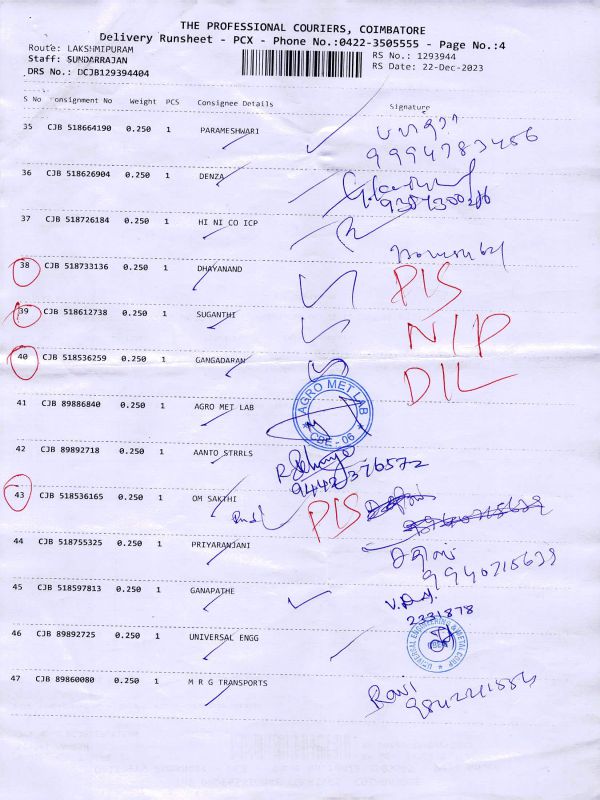 THE PROFESSIONAL COURIERS, COIMBATORE
Delivery Runsheet - PCX - Phone No.:0422-3505555 - Page No.:4
Route: LAKSHMIPURAM
Staff: SUNDARRAJAN
DRS No.: DCJB129394404
RS No.: 1293944
RS Date: 22-Dec-2023
S No Consignment No Weight PCS Consignee Details Signature
35 CJB 518664190 0.250 1 PARAMESHWARI
9994783456
36 CJB 518626904 0.250 1 DENZA
37 CJB 518726184 0.250 1 HI NI CO ICP
38 CJB 518733136 0.250 1 DHAYANAND P/S
39 CJB 518612738 0.250 1 SUGANTHI N/P
40 CJB 518536259 0.250 1 GANGADARAN D/L
41 CJB 89886840 0.250 1 AGRO MET LAB
AGRO MET LAB
CBE - 06
42 CJB 89892718 0.250 1 AANTO STRRLS
9442376572
43 CJB 518536165 0.250 1 OM SAKTHI P/S
44 CJB 518755325 0.250 1 PRIYARANJANI
9940715639
45 CJB 518597813 0.250 1 GANAPATHE
2331878
46 CJB 89892725 0.250 1 UNIVERSAL ENGG
UNIVERSAL ENGINEERING & METAL CORP
47 CJB 89860080 0.250 1 M R G TRANSPORTS
Ravi